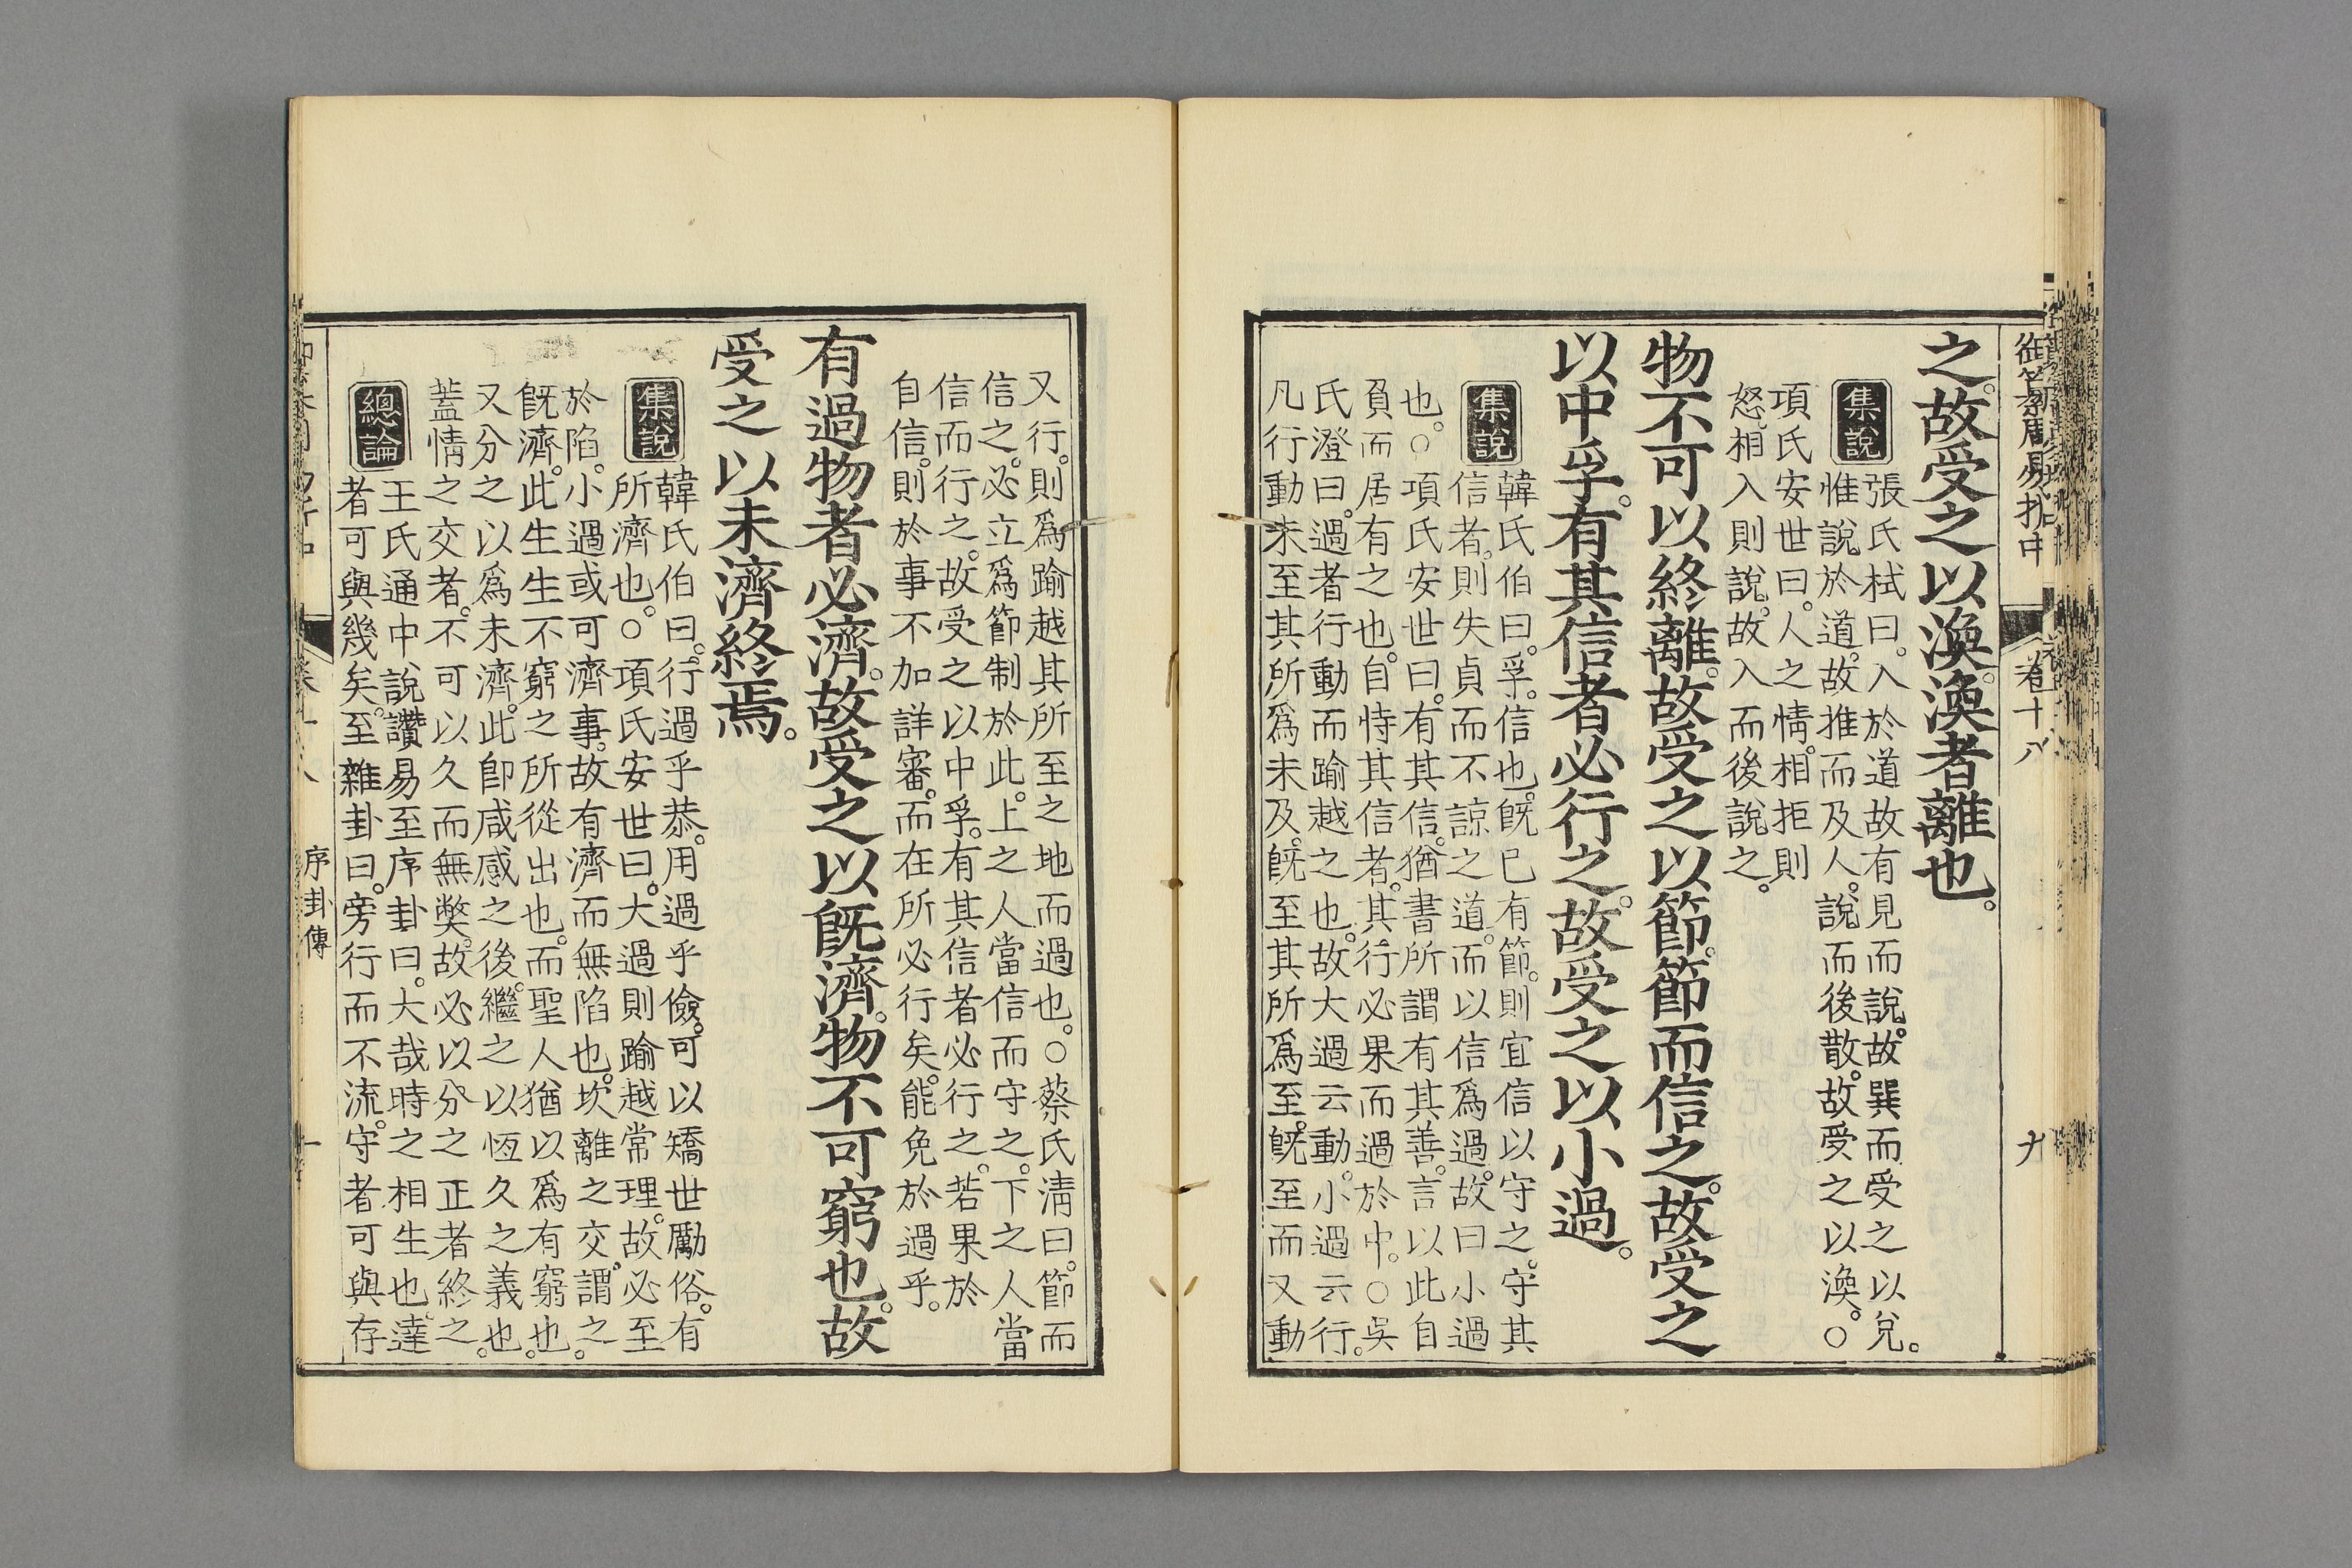 御纂周易折中
卷十八
九
之。故受之以渙。渙者離也。
集說
張氏栻曰。入於道故有見而說。故巽而受之以兌。
惟說於道。故推而及人。說而後散。故受之以渙。○
項氏安世曰。人之情。相拒則
怒。相入則說。故入而後說之。
物不可以終離。故受之以節。節而信之。故受之
以中孚。有其信者必行之。故受之以小過。
集說
韓氏伯曰。孚。信也。旣已有節。則宜信以守之。守其
信者。則失貞而不諒之道。而以信爲過。故曰小過
也。○項氏安世曰。有其信。猶書所謂有其善。言以此自
負而居有之也。自恃其信者。其行必果而過於中。○吳
氏澄曰。過者行動而踰越之也。故大過云動。小過云行。
凡行動未至其所爲未及。旣至其所爲至。旣至而又動
又行。則爲踰越其所至之地而過也。○蔡氏淸曰。節而
信之。必立爲節制於此。上之人當信而守之。下之人當
信而行之。故受之以中孚。有其信者必行之。若果於
自信。則於事不加詳審。而在所必行矣。能免於過乎。
有過物者必濟。故受之以旣濟。物不可窮也。故
受之以未濟終焉。
集說
韓氏伯曰。行過乎恭。用過乎儉。可以矯世勵俗。有
所濟也。○項氏安世曰。大過則踰越常理。故必至
於陷。小過或可濟事。故有濟而無陷也。坎離之交。謂之
旣濟。此生生不窮之所從出也。而聖人猶以爲有窮也。
又分之以爲未濟。此卽咸感之後。繼之以恆久之義也。
蓋情之交者。不可以久而無弊。故必以分之正者終之。
總論
王氏通中說讚易至序卦曰。大哉時之相生也。達
者可與幾矣。至雜卦曰。旁行而不流。守者可與存
序卦傳